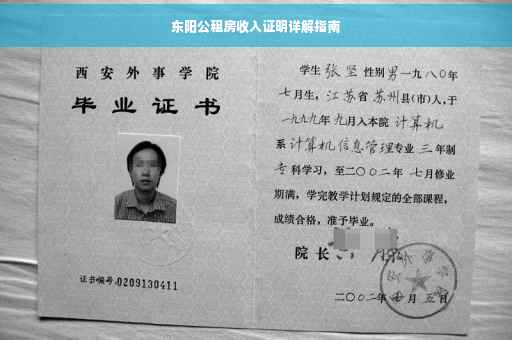 东阳公租房收入证明详解指南
西安外事学院
毕业证书
证书编号:0209130411
学生 张坚 性别 男 一九八〇年
七月生，江苏省 苏州县(市)人，于
一九九九年 九月入本院 计算机
系 计算机信息管理专业 三 年制
专科学习，至二〇〇二年 七月修业
期满，学完教学计划规定的全部课程，
成绩合格，准予毕业。
院长
二〇〇二年 七月 五日